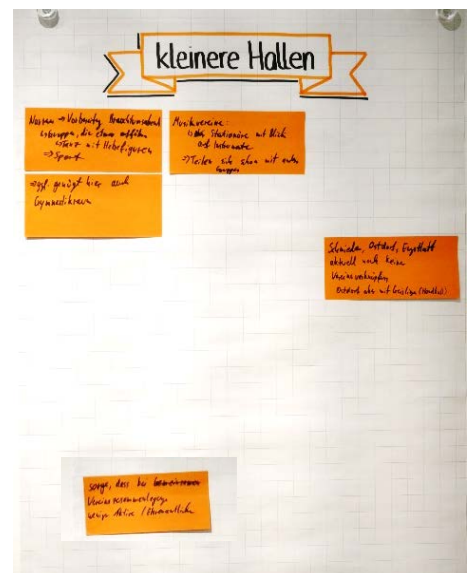 kleinere Hallen
Narren → Vorbereitung Brauchtumsabend
↳ Gruppen, die etwas aufführen
↳ Tanz mit Hebefiguren
→ Sport
→ ggf. genügt hier auch
Gymnastikraum
Musikvereine:
↳ Stationäre mit Blick
auf Instrumente
→ Teilen sich schon mit anderen
Gruppen
Schmiden, Ostdorf, Engstlatt
aktuell noch keine
Vereinsverknüpfung
Ostdorf aber mit Geislingen (Handball)
sorge, dass bei
Vereinszusammenlegung
wenige Aktive / Ehrenamtliche